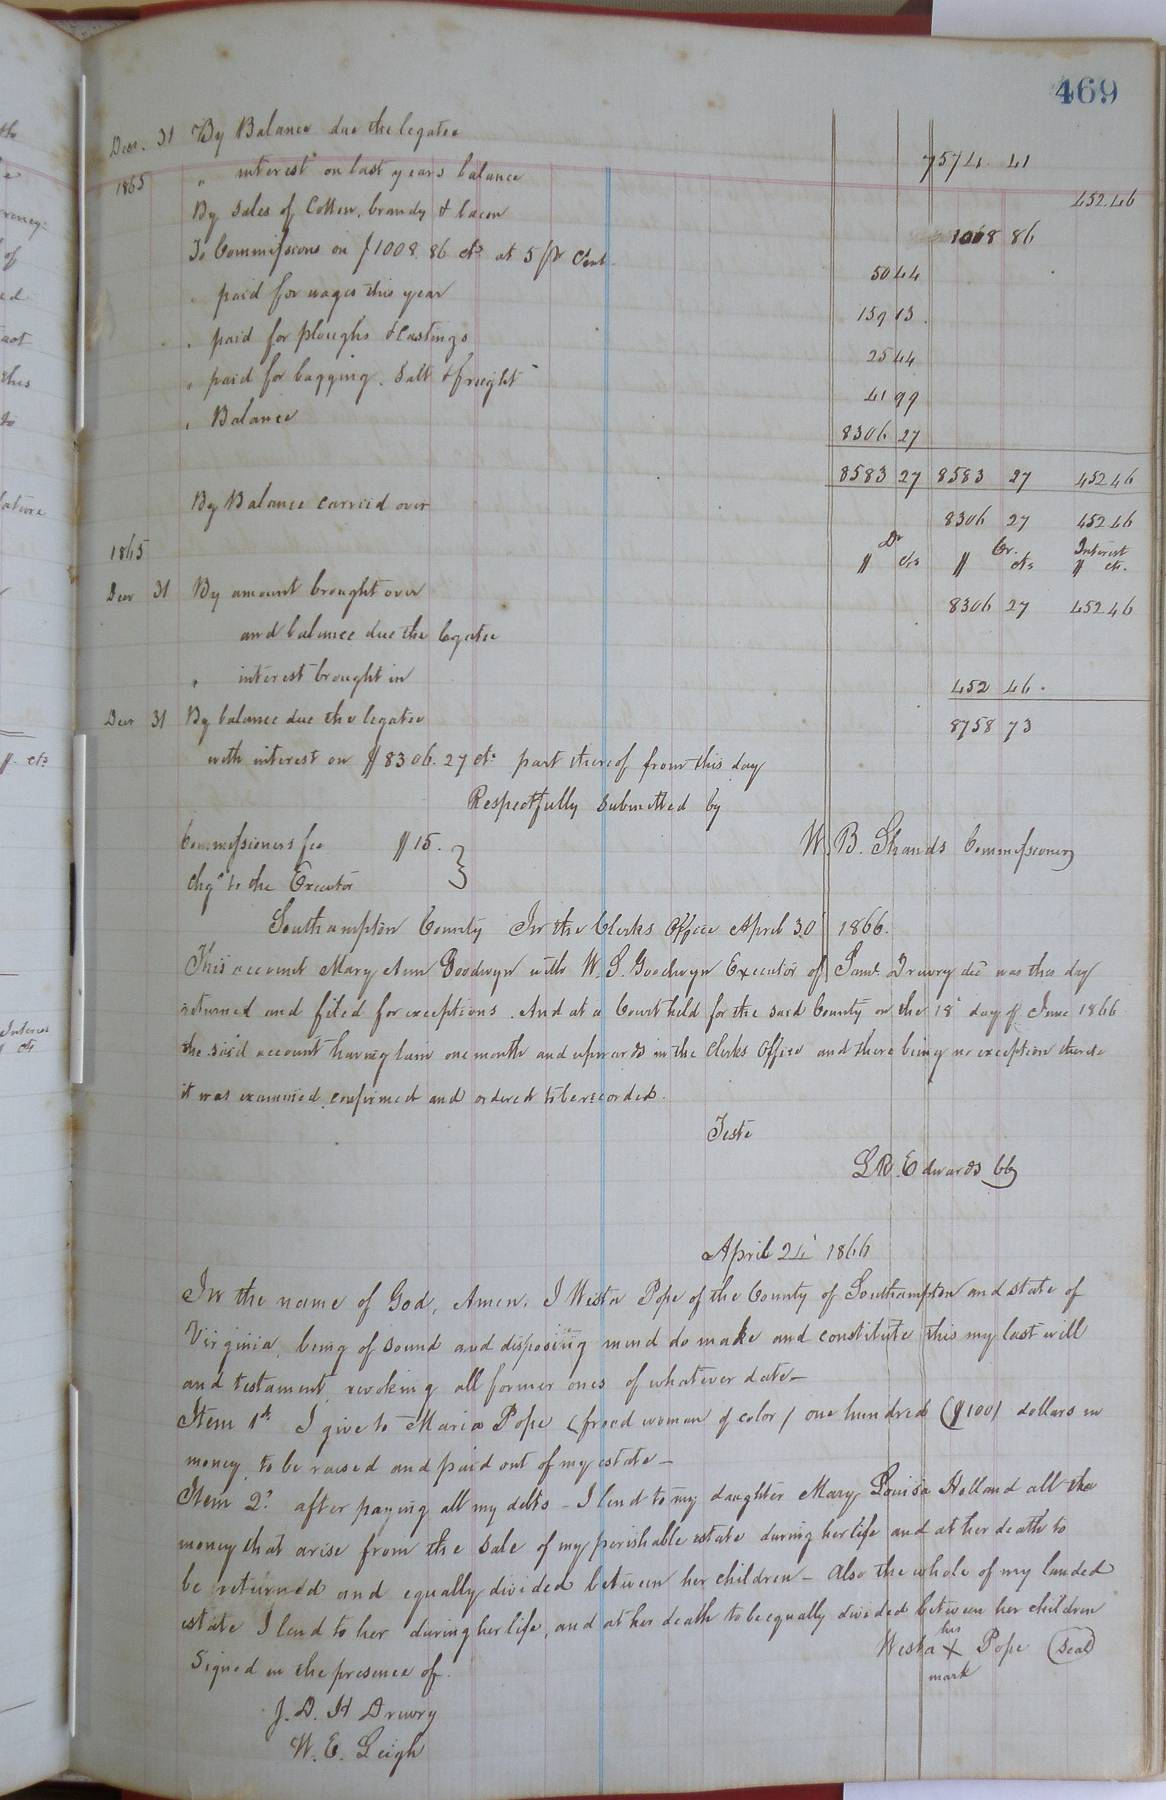 469
Decr. 31 By Balance due the legatee 7574 41
1865 " interest on last years balance 452 46
By Sales of Cotton, brandy & bacon 1008 86
To Commissions on $1008.86 cts at 5 pr Cent 50 44
" paid for wages this year 159 13
" paid for ploughs & Castings 25 44
" paid for bagging, Salt & freight 41 99
" Balance 8306 27
8583 27 8583 27 452 46
By Balance carried over 8306 27 452 46
1865 Dr Cr. Interest
$ cts $ cts $ cts.
Decr 31 By amount brought over 8306 27 452 46
and balance due the legatee
" interest brought in 452 46.
Decr 31 By balance due the legatee 8758 73
with interest on $8306.27 cts part thereof from this day
Respectfully Submitted by
Commissioners fee $15. W. B. Shands Commissioner
chgd to the Executor
Southampton County In the Clerks Office April 30 1866.
This account Mary Ann Goodwyn with W. S. Goodwyn Executor of Saml. Drewry decd was this day
returned and filed for exceptions. And at a Court held for the said County on the 18 day of June 1866
the said account having lain one month and upwards in the Clerks Office and there being no exception thereto
it was examined, confirmed and ordered to be recorded.
Teste
L. R. Edwards CC
April 24 1866
In the name of God, Amen. I Westa Pope of the County of Southampton and state of
Virginia, being of sound and disposing mind do make and constitute this my last will
and testament, revoking all former ones of whatever date–
Item 1st I give to Maria Pope (freed woman of color) one hundred ($100) dollars in
money, to be raised and paid out of my estate–
Item 2d after paying all my debts – I lend to my daughter Mary Louisa Holland all the
money that arise from the sale of my perishable estate during her life and at her death to
be returned and equally divided between her children – Also the whole of my landed
estate I lend to her during her life, and at her death to be equally divided between her children
his
Westa X Pope (Seal)
mark
Signed in the presence of.
J. D. H Drewry
W. E. Leigh